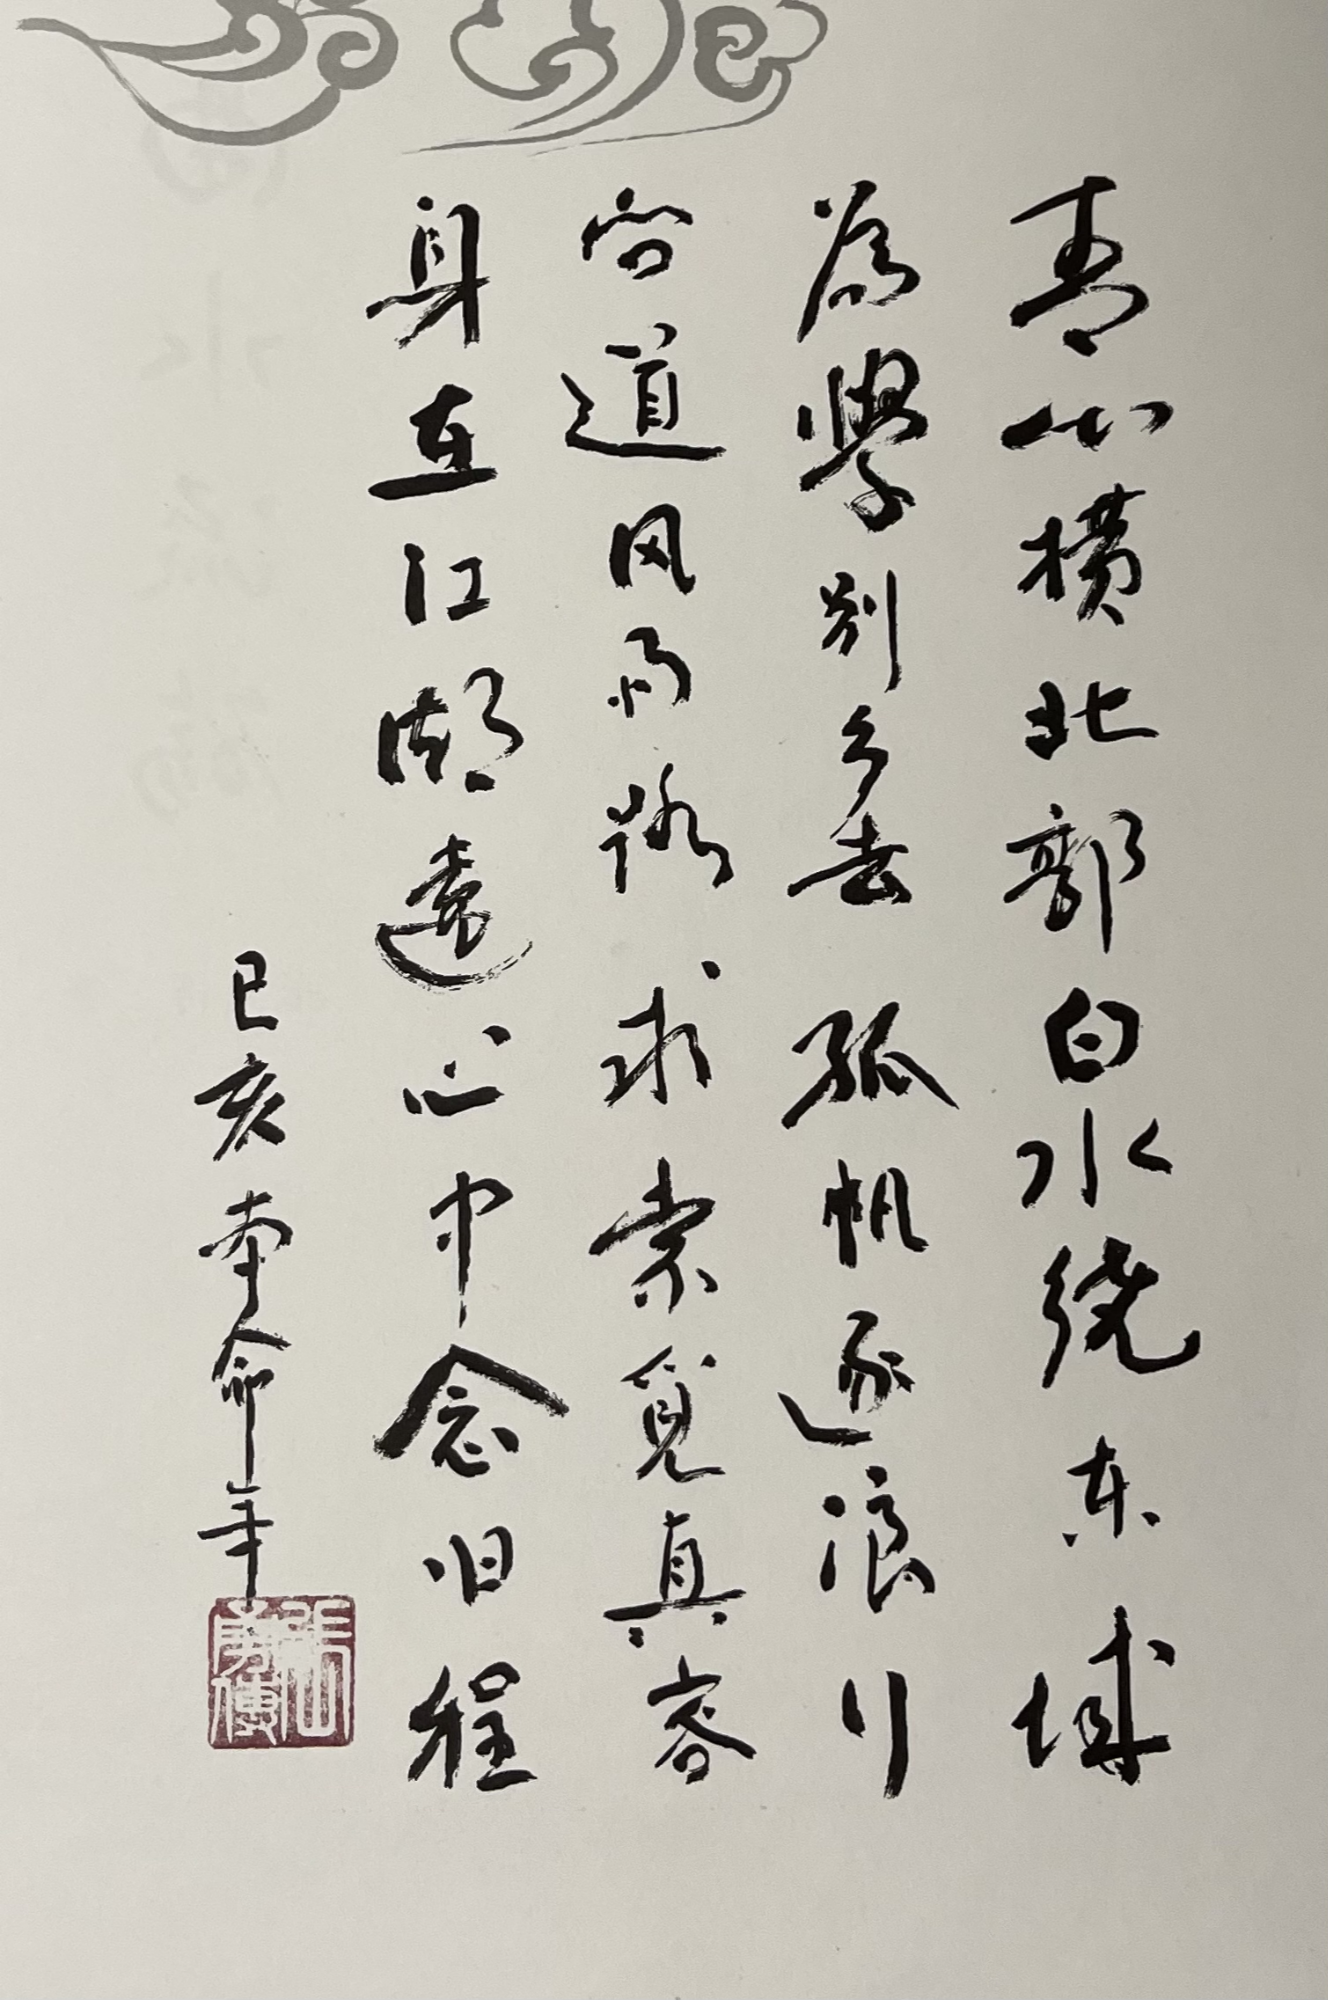 青山横北部白水绕东城
为學别乡去孤帆逐浪行
向道风雨路求索觅真容
身在江湖远心中念旧程
己亥本命年